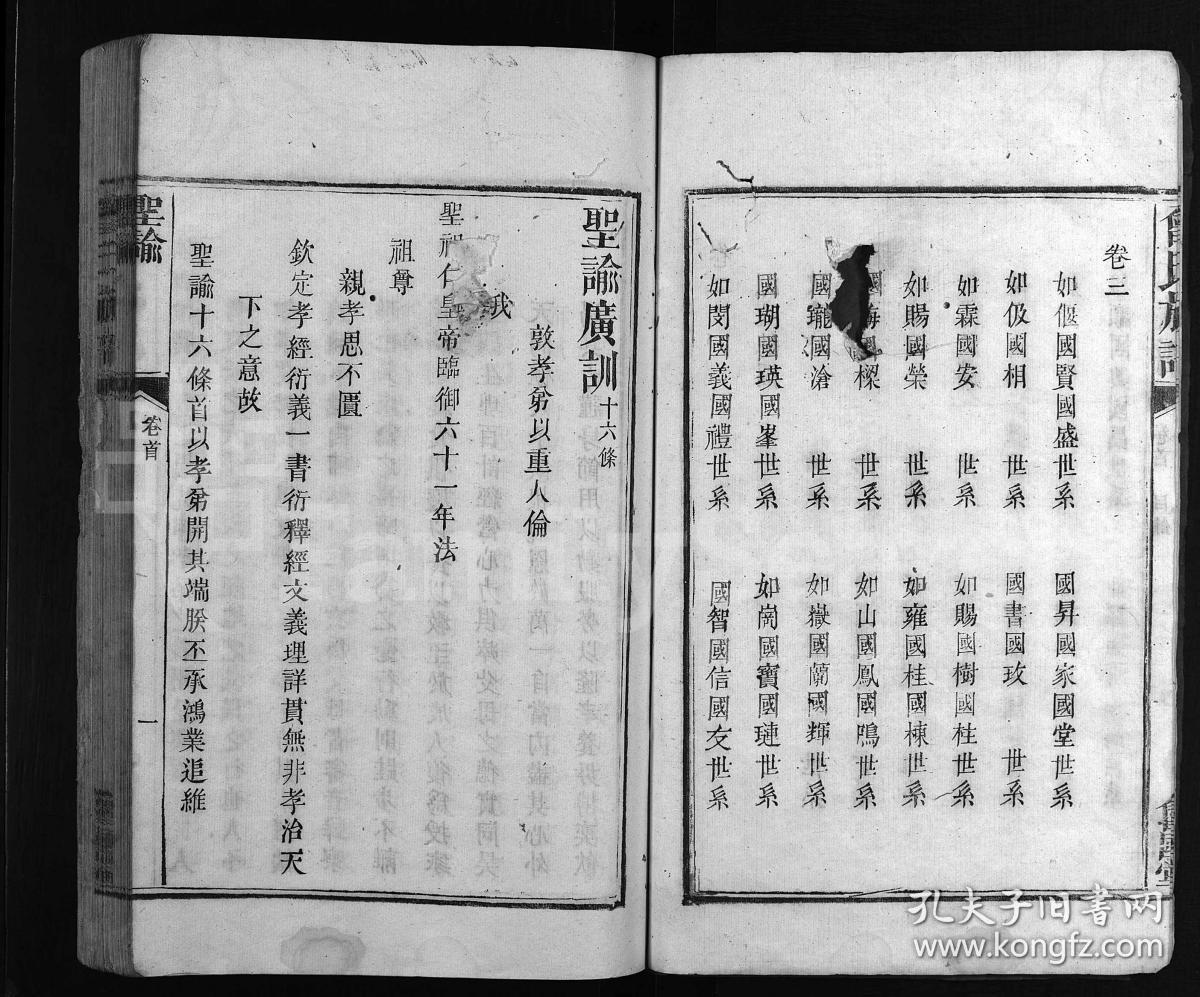 卷三
如偃國賢國盛世系　國昇國家國堂世系
如伋國相　世系　國書國玫　世系
如霖國安　世系　如賜國樹國柱世系
如賜國榮　世系　如雍國桂國棟世系
國海國樑　世系　如山國鳳國鳴世系
國瓏國滄　世系　如嶽國蘭國輝世系
國瑚國瑛國峯世系　如崗國寶國璉世系
如閔國義國禮世系　國智國信國友世系
聖諭廣訓十六條
敦孝弟以重人倫
我
聖祖仁皇帝臨御六十一年法
祖尊
親孝思不匱
欽定孝經衍義一書衍釋經文義理詳貫無非孝治天
下之意故
聖諭十六條首以孝弟開其端朕丕承鴻業追維
聖諭
卷首
一
孔夫子旧书网
www.kongfz.com